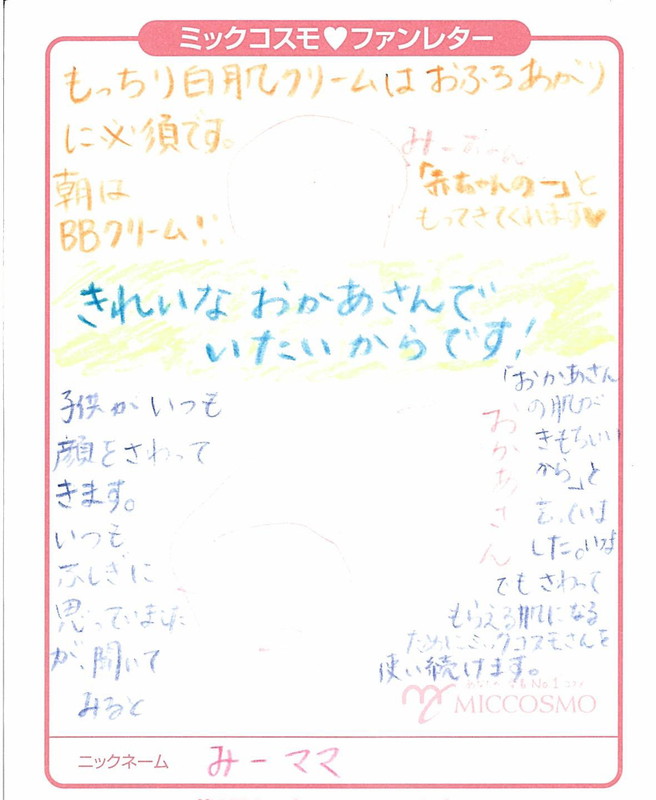 ミックコスモ♥ファンレター
もっちり白肌クリームはおふろあがり
に必須です。
朝は
BBクリーム!!
みーちゃん
「赤ちゃんのー」と
もってきてくれます♥
きれいなおかあさんで
いたいからです!
子供がいつも
顔をさわって
きます。
いつも
ふしぎに
思っていました
が、聞いて
みると
おかあさん
「おかあさん
の肌が
きもちいい
から」と
言っていま
した。いつま
でもさわって
もらえる肌になる
ためにミックコスモさんを
使い続けます。
No.1
MICCOSMO
ニックネーム みーママ